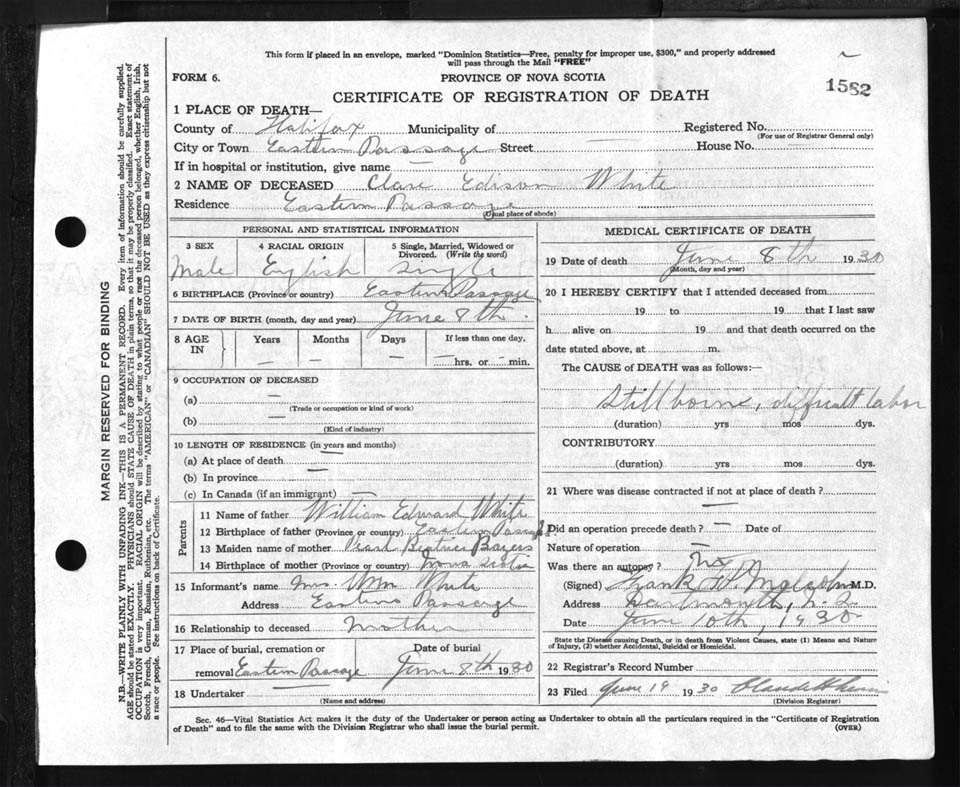 This form if placed in an envelope, marked "Dominion Statistics—Free, penalty for improper use, $300," and properly addressed
will pass through the Mail "FREE"
FORM 6.
PROVINCE OF NOVA SCOTIA
1562
CERTIFICATE OF REGISTRATION OF DEATH
1 PLACE OF DEATH—
County of Halifax Municipality of Registered No.
(For use of Registrar General only)
City or Town Eastern Passage Street — House No. —
If in hospital or institution, give name —
2 NAME OF DECEASED Clare Edison White
Residence Eastern Passage
(Usual place of abode)
PERSONAL AND STATISTICAL INFORMATION
3 SEX 4 RACIAL ORIGIN 5 Single, Married, Widowed or
Divorced. (Write the word)
Male English Single
6 BIRTHPLACE (Province or country) Eastern Passage
7 DATE OF BIRTH (month, day and year) June 8th.
8 AGE IN Years Months Days If less than one day,
— — — — hrs. or — min.
9 OCCUPATION OF DECEASED
(a) —
(Trade or occupation or kind of work)
(b) —
(Kind of industry)
10 LENGTH OF RESIDENCE (in years and months)
(a) At place of death —
(b) In province —
(c) In Canada (if an immigrant) —
Parents
11 Name of father William Edward White
12 Birthplace of father (Province or country) Eastern Passage
13 Maiden name of mother Pearl Beatrice Bayers
14 Birthplace of mother (Province or country) Nova Scotia
15 Informant's name Mrs. Wm. White
Address Eastern Passage
16 Relationship to deceased Mother
17 Place of burial, cremation or Date of burial
removal Eastern Passage June 8th 1930
18 Undertaker
(Name and address)
MEDICAL CERTIFICATE OF DEATH
19 Date of death June 8th 1930
(Month, day and year)
20 I HEREBY CERTIFY that I attended deceased from
19 to 19 that I last saw
h alive on 19 and that death occurred on
date stated above, at m.
The CAUSE of DEATH was as follows:—
Stillborne, difficult labor
(duration) yrs mos dys.
CONTRIBUTORY
(duration) yrs mos dys.
21 Where was disease contracted if not at place of death?
—
Did an operation precede death? — Date of
Nature of operation —
Was there an autopsy? No
(Signed) Frank W. Malcolm M.D.
Address Dartmouth, N.S.
Date June 10th, 1930
State the Disease causing Death, or in death from Violent Causes, state (1) Means and Nature
of Injury, (2) whether Accidental, Suicidal or Homicidal.
22 Registrar's Record Number
23 Filed June 19 1930
(Division Registrar)
Sec. 46—Vital Statistics Act makes it the duty of the Undertaker or person acting as Undertaker to obtain all the particulars required in the "Certificate of Registration
of Death" and to file the same with the Division Registrar who shall issue the burial permit.
(OVER)
MARGIN RESERVED FOR BINDING
N.B.—WRITE PLAINLY WITH UNFADING INK—THIS IS A PERMANENT RECORD. Every item of information should be carefully supplied.
AGE should be stated EXACTLY. PHYSICIANS should STATE CAUSE OF DEATH in plain terms, so that it may be properly classified. Exact statement of
OCCUPATION is very important. RACIAL ORIGIN will be described by stating to what people or race the deceased person belonged, whether English, Irish,
Scotch, French, German, Russian, Ruthenian, etc. The terms "AMERICAN" or "CANADIAN" SHOULD NOT BE USED as they express citizenship but not
a race or people. See instructions on back of Certificate.